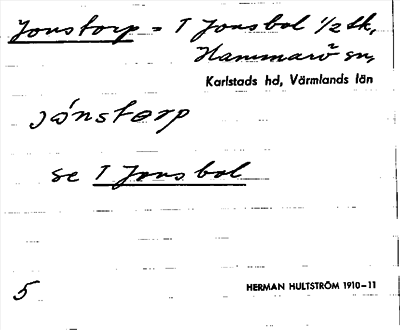 Jonstorp = T Jonsbol 1/2 sk,
Hammarö sn,
Karlstads hd, Värmlands län
jónstorp
se T Jonsbol
5 HERMAN HULTSTRÖM 1910–11